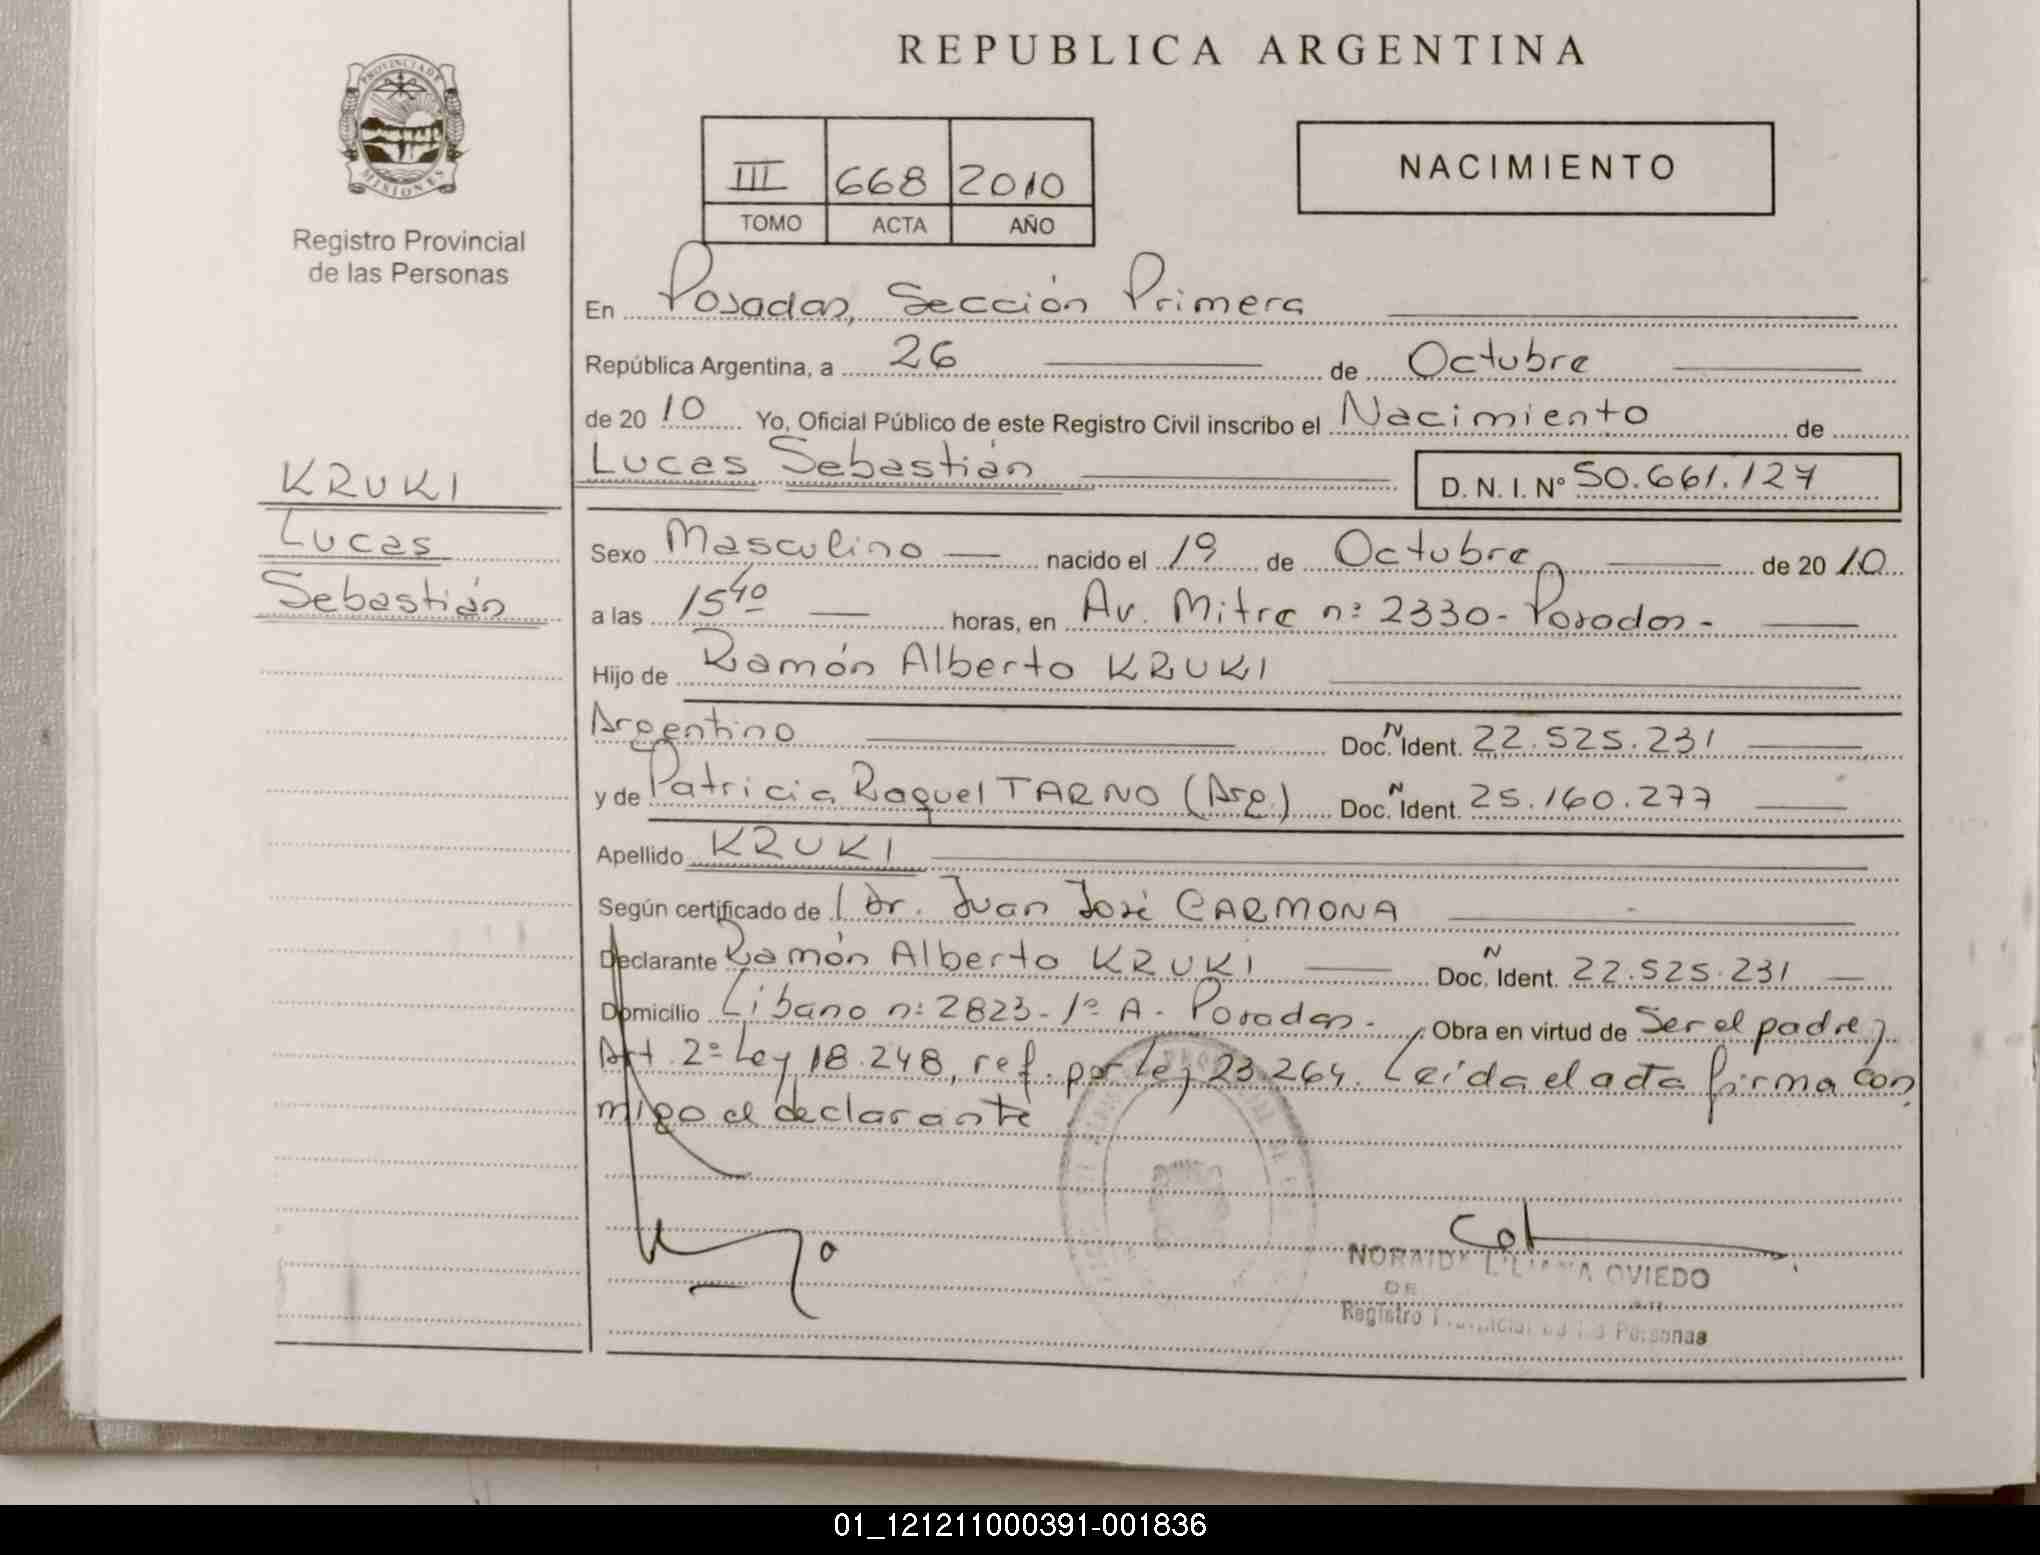 REPUBLICA ARGENTINA
PROVINCIA DE
MISIONES
Registro Provincial
de las Personas
III 668 2010
TOMO ACTA AÑO
NACIMIENTO
En Posadas, Sección Primera
República Argentina, a 26 de Octubre
de 2010 Yo, Oficial Público de este Registro Civil inscribo el Nacimiento de
Lucas Sebastián D. N. I. Nº 50.661.127
KRUKI
Lucas
Sebastián
Sexo Masculino nacido el 19 de Octubre de 2010
a las 15 40 horas, en Av. Mitre nº 2330 - Posadas -
Hijo de Ramón Alberto KRUKI
Argentino Doc. N Ident. 22.525.231
y de Patricia Raquel TARNO (Arg.) Doc. N Ident. 25.160.277
Apellido KRUKI
Según certificado de Dr. Juan José CARMONA
Declarante Ramón Alberto KRUKI Doc. N Ident. 22.525.231
Domicilio Líbano nº 2823 - 1º A - Posadas - Obra en virtud de Ser el padre y
Art. 2º Ley 18.248, ref. por Ley 23.264. Leída el acta firma con
migo el declarante
OVIEDO
Registro Provincial de las Personas
01_121211000391-001836